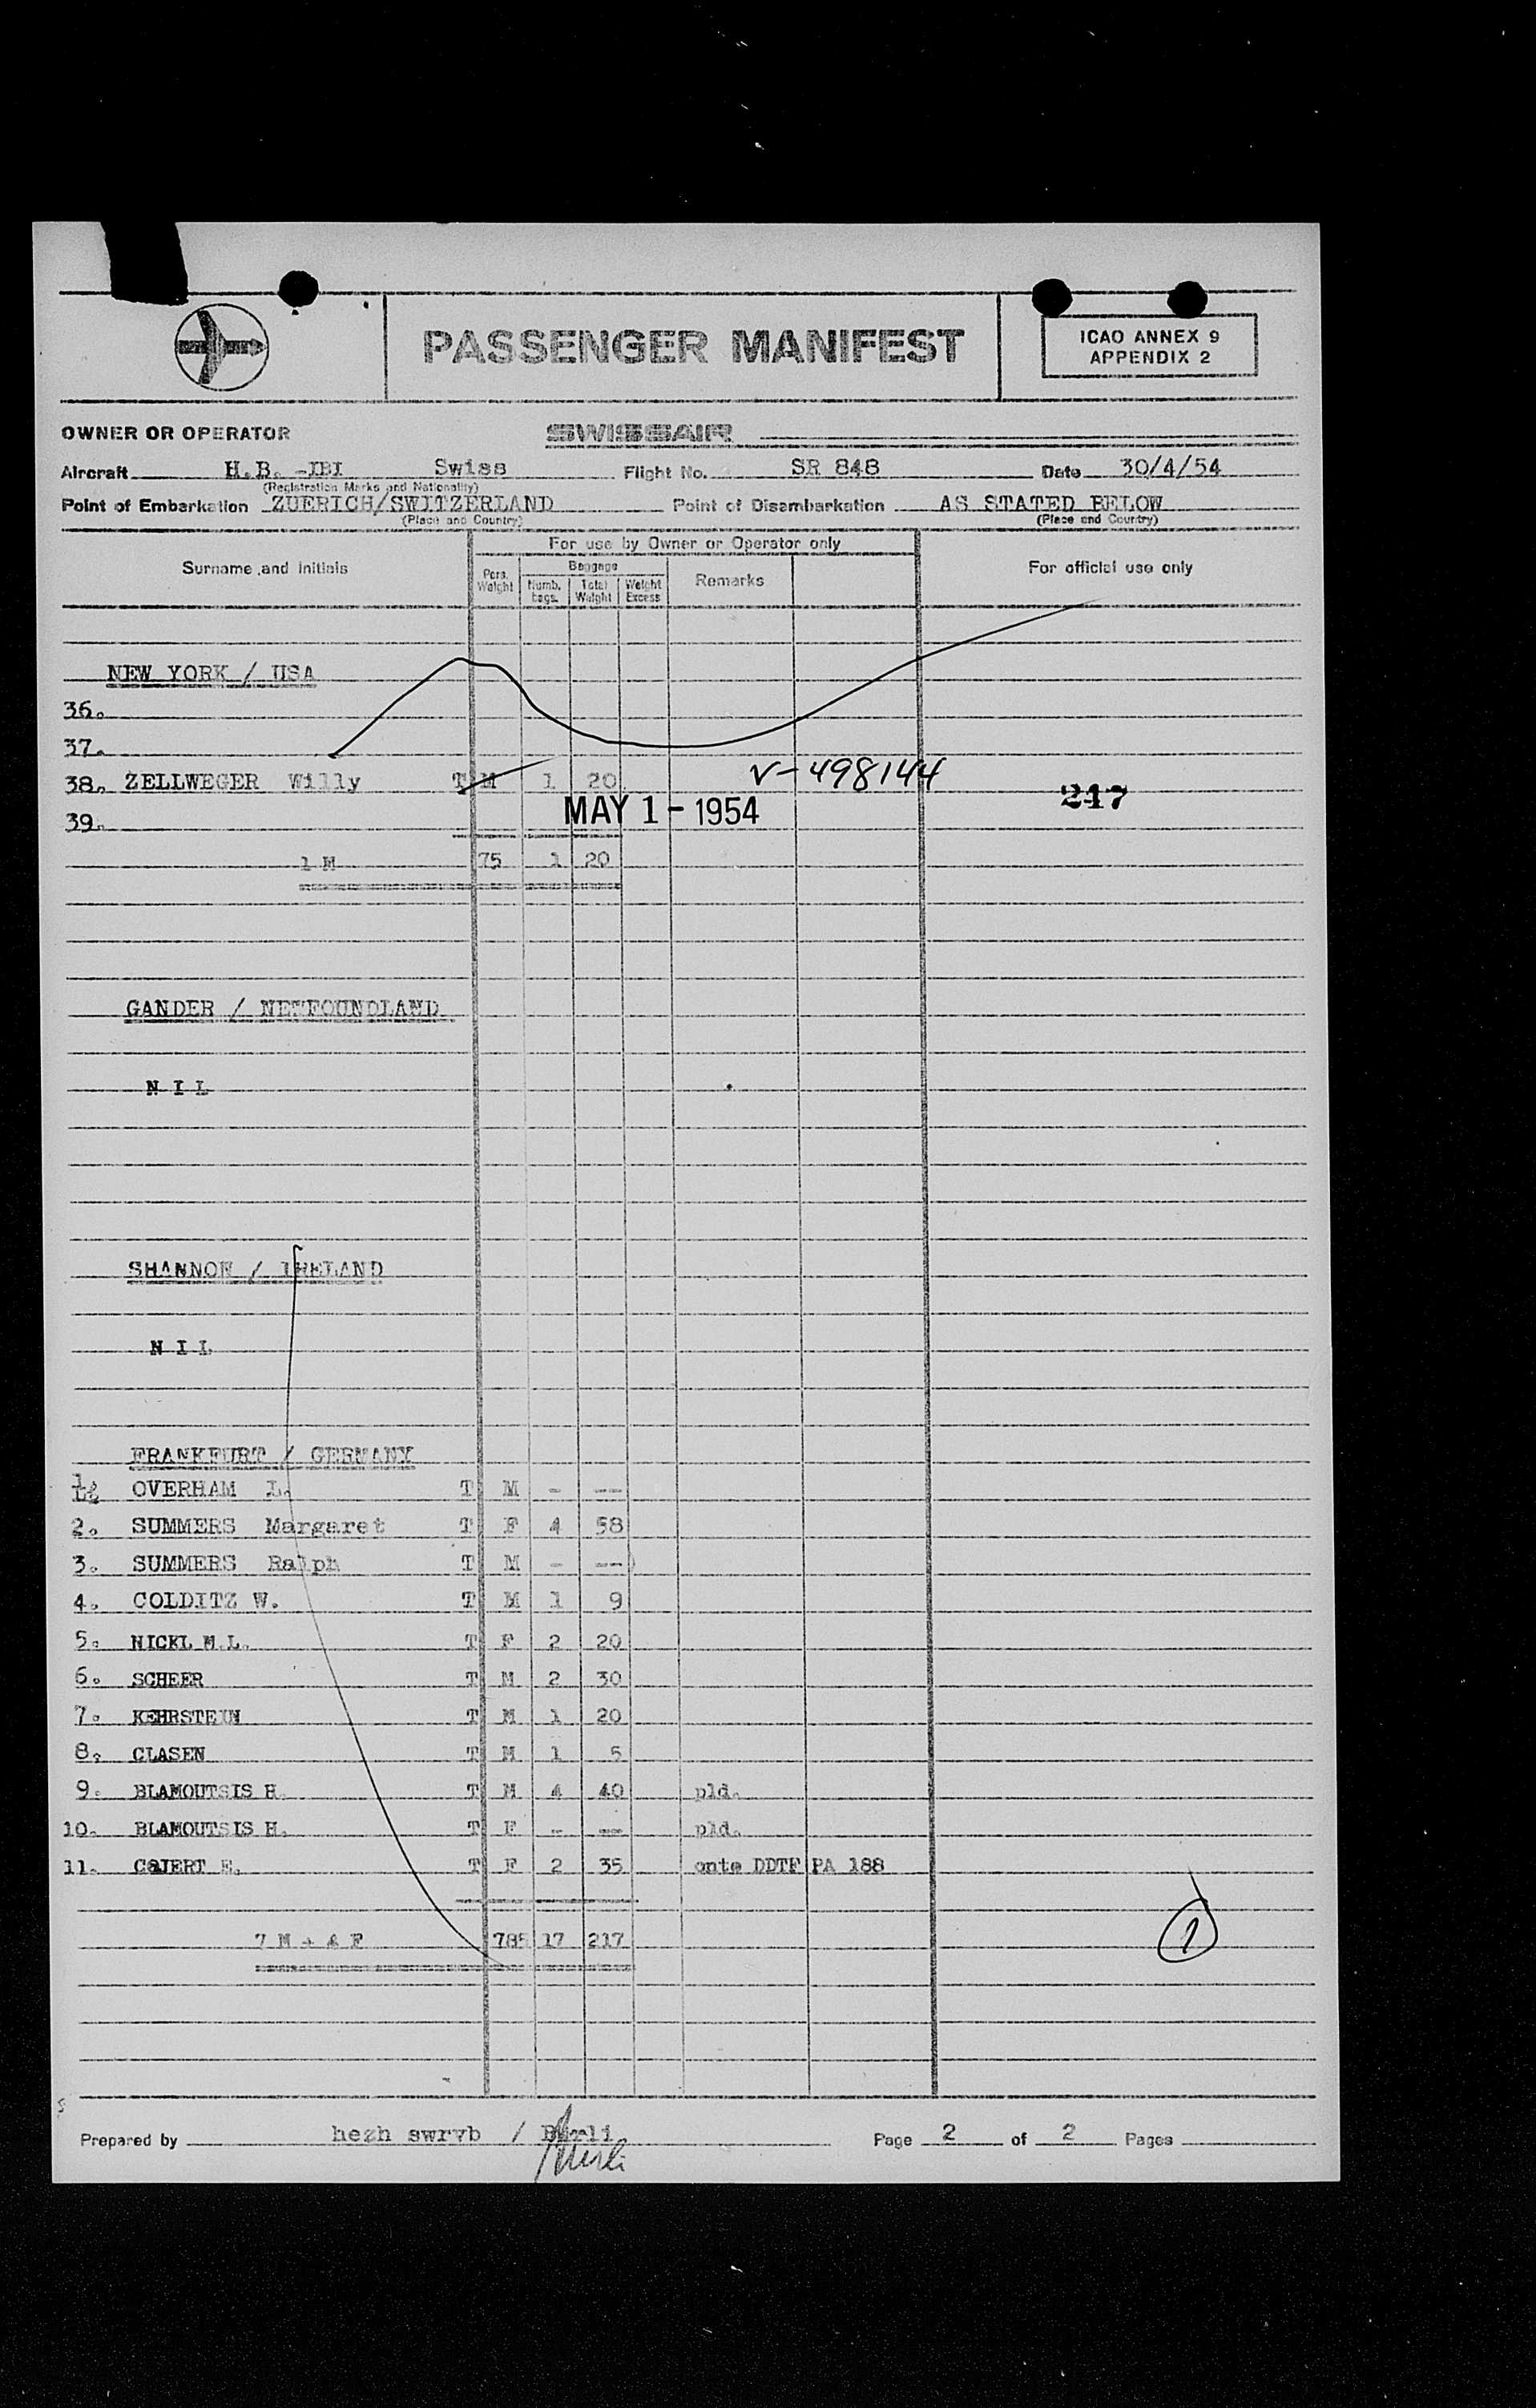 PASSENGER MANIFEST
ICAO ANNEX 9
APPENDIX 2
OWNER OR OPERATOR SWISSAIR
Aircraft H.B. -IBI Swiss Flight No. SR 848 Date 30/4/54
(Registration Marks and Nationality)
Point of Embarkation ZUERICH/SWITZERLAND Point of Disembarkation AS STATED BELOW
(Place and Country) (Place and Country)
For use by Owner or Operator only
Surname and initials Pers. Weight Baggage Numb. bags. Total Weight Weight Excess Remarks For official use only
NEW YORK / USA
36.
37.
38. ZELLWEGER Willy T M 1 20 V-498144
247
39. MAY 1 - 1954
1 M 75 1 20
GANDER / NEWFOUNDLAND
N I L
SHANNON / IRELAND
N I L
FRANKFURT / GERMANY
1. OVERHAM L. T M - --
2. SUMMERS Margaret T F 4 58
3. SUMMERS Ralph T M - --)
4. COLDITZ W. T M 1 9
5. NICKL M.L. T F 2 20
6. SCHEER T M 2 30
7. KEHRSTEIN T M 1 20
8. CLASEN T M 1 5
9. BLAMOUTSIS H. T M 4 40 pld.
10. BLAMOUTSIS H. T F - -- pld.
11. T F 2 35 onto DDTF PA 188
7 M + 4 F 785 17 217
1
Prepared by hezh swrvb / Page 2 of 2 Pages